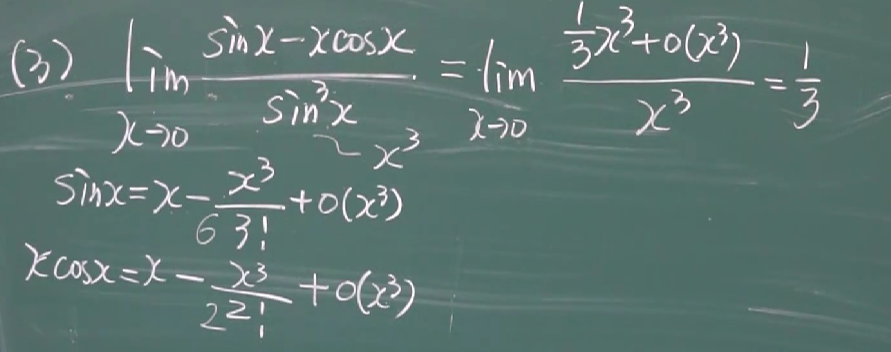 (3) lim_{x→0} \frac{sinx-xcosx}{sin³x} = lim_{x→0} \frac{\frac{1}{3}x³+o(x³)}{x³} = \frac{1}{3}
~x³
sinx=x-\frac{x³}{6 3!}+o(x³)
xcosx=x-\frac{x³}{2 2!}+o(x³)